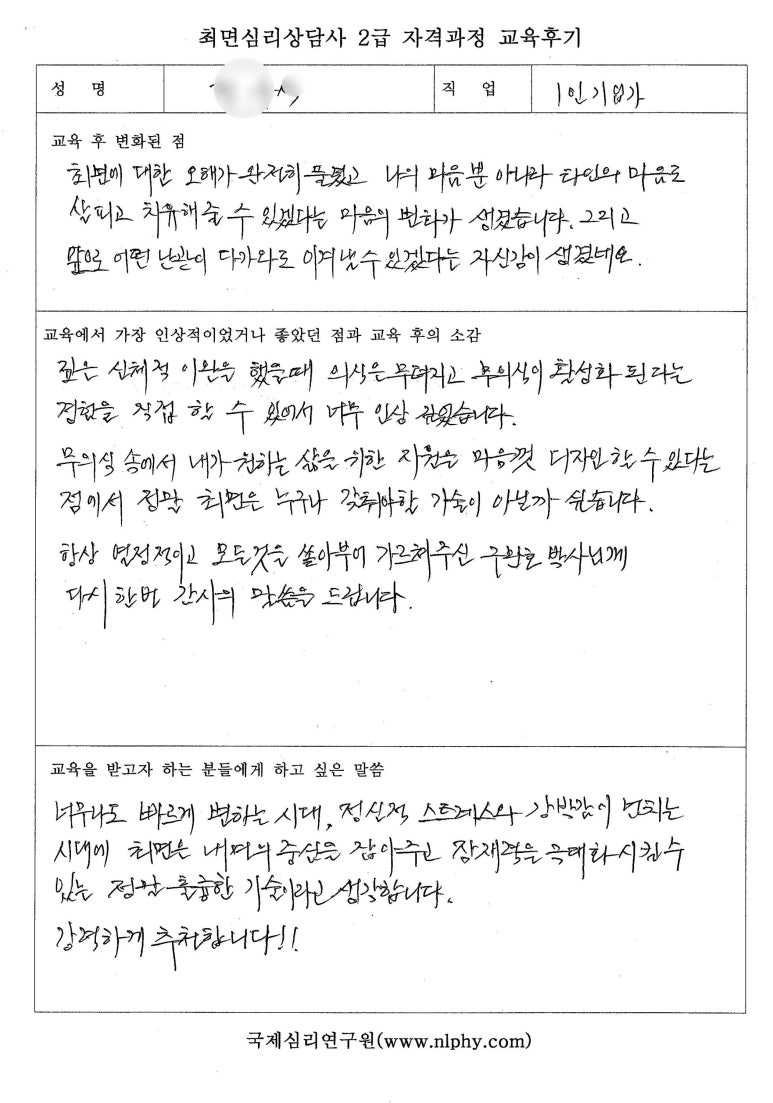 최면심리상담사 2급 자격과정 교육후기
성 명
직 업 1인기업가
교육 후 변화된 점
최면에 대한 오해가 완전히 풀렸고 나의 마음뿐 아니라 타인의 마음도
살피고 치유해줄 수 있겠다는 마음의 변화가 생겼습니다. 그리고
앞으로 어떤 난관이 다가와도 이겨낼 수 있겠다는 자신감이 생겼네요.
교육에서 가장 인상적이었거나 좋았던 점과 교육 후의 소감
깊은 신체적 이완을 했을때 의식은 무뎌지고 무의식이 활성화 된다는
경험을 직접 할 수 있어서 너무 인상 깊었습니다.
무의식 속에서 내가 원하는 삶을 위한 자원을 마음껏 디자인 할 수 있다는
점에서 정말 최면은 누구나 갖춰야할 기술이 아닐까 싶습니다.
항상 열정적이고 모든것을 쏟아부어 가르쳐주신 구환호 박사님께
다시 한번 감사의 말씀을 드립니다.
교육을 받고자 하는 분들에게 하고 싶은 말씀
너무나도 빠르게 변하는 시대, 정신적 스트레스와 강박감이 넘치는
시대에 최면은 내면의 중심을 잡아주고 잠재력을 극대화 시킬 수
있는 정말 훌륭한 기술이라고 생각합니다.
강력하게 추천합니다!!
국제심리연구원(www.nlphy.com)